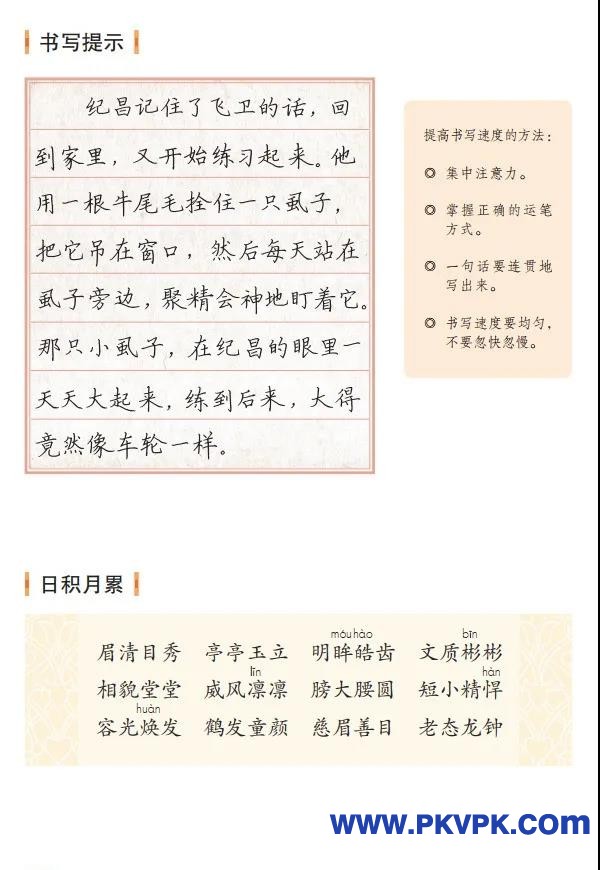 书写提示
纪昌记住了飞卫的话，回
到家里，又开始练习起来。他
用一根牛尾毛拴住一只虱子，
把它吊在窗口，然后每天站在
虱子旁边，聚精会神地盯着它。
那只小虱子，在纪昌的眼里一
天天大起来，练到后来，大得
竟然像车轮一样。
提高书写速度的方法：
◎ 集中注意力。
◎ 掌握正确的运笔
方式。
◎ 一句话要连贯地
写出来。
◎ 书写速度要均匀，
不要忽快忽慢。
日积月累
móu hào bīn
眉清目秀 亭亭玉立 明眸皓齿 文质彬彬
lǐn hàn
相貌堂堂 威风凛凛 膀大腰圆 短小精悍
huàn
容光焕发 鹤发童颜 慈眉善目 老态龙钟
www.PKVPK.com